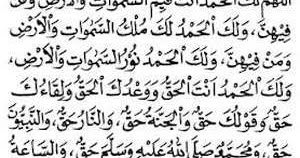 اللهم لك الحمد أنت قيم السموات والأرض ومن
فيهن، ولك الحمد لك ملك السموات والأرض
ومن فيهن، ولك الحمد نور السموات والأرض،
ولك الحمد أنت الحق ووعدك الحق ولقاءك
حق وقولك حق والجنة حق، والنار حق، والنبيون
حق، ومحمد صلى الله عليه وسلم حق، والساعة